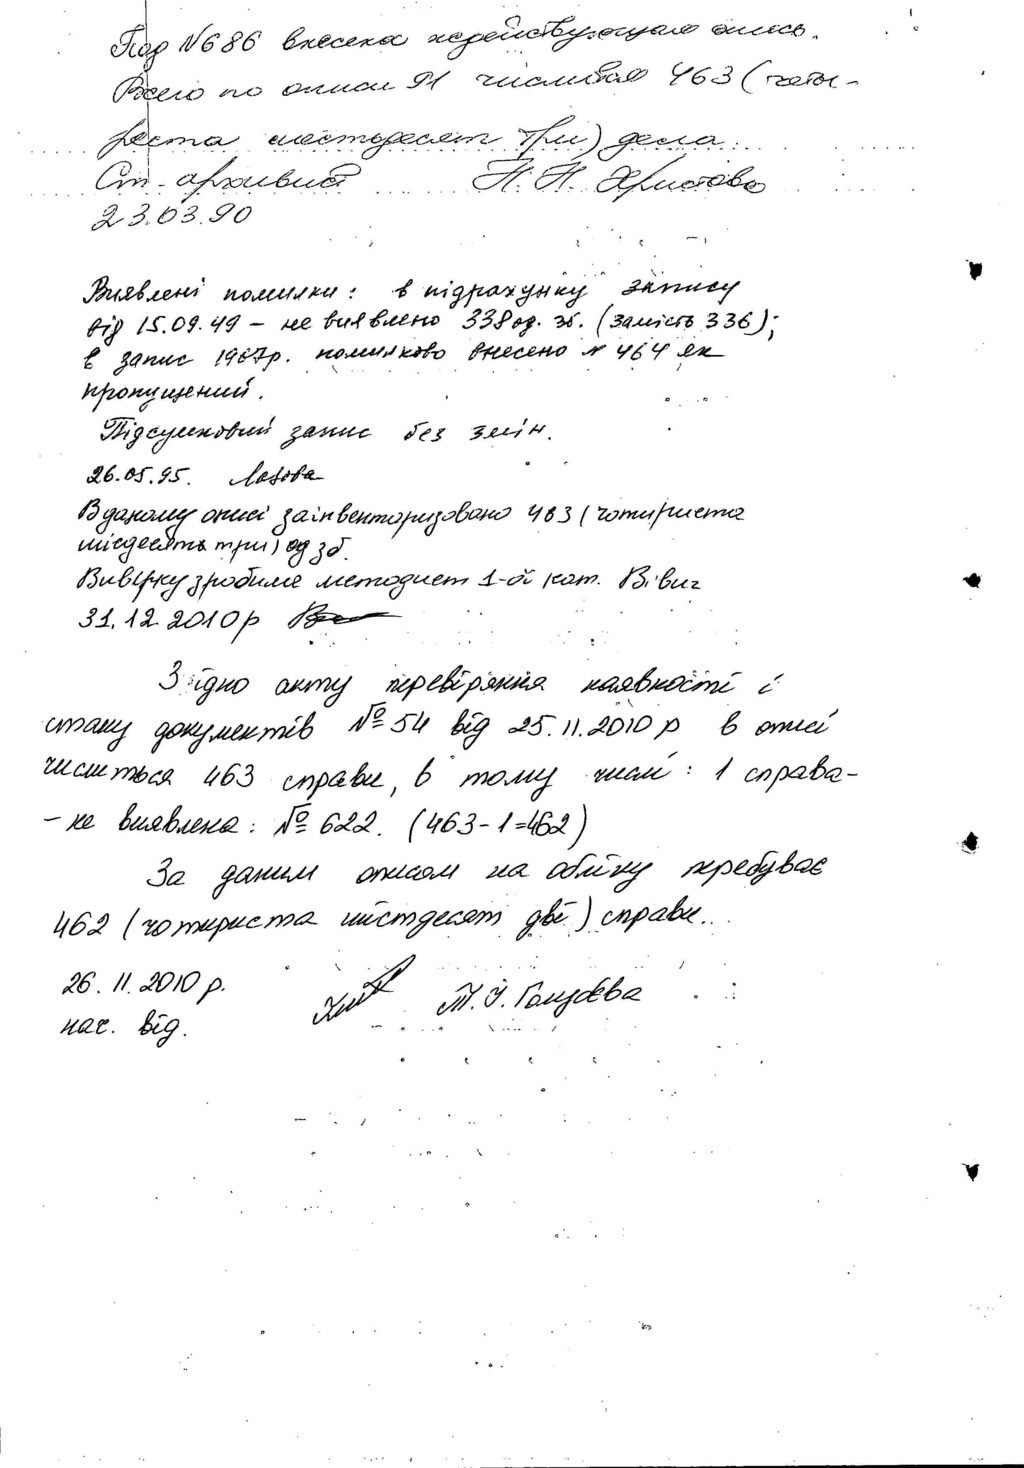 Под №686 внесена недействующая опись.
Всего по описи 91 числится 463 (четы-
реста шестьдесят три) дела.
Ст. архивист Н. Н. Христова
23.03.90
Виявлені помилки: в підрахунку запису
від 15.09.49 – не виявлено 338 од. зб. (замість 336);
в запис 1967р. помилково внесено № 464 як
пропущений.
Підсумковий запис без змін.
26.05.95.
В даному описі заінвенторизовано 463 (чотириста
шісдесять три) од зб.
Вивірку зробила методист 1-ої кат.
31.12.2010р
Згідно акту перевіряння наявності і
стану документів № 54 від 25.11.2010 р в описі
числиться 463 справи, в тому числі: 1 справа-
- не виявлена: № 622. (463-1=462)
За даним описом на обліку перебуває
462 (чотириста шістдесят дві) справи.
26.11.2010 р.
нач. від.